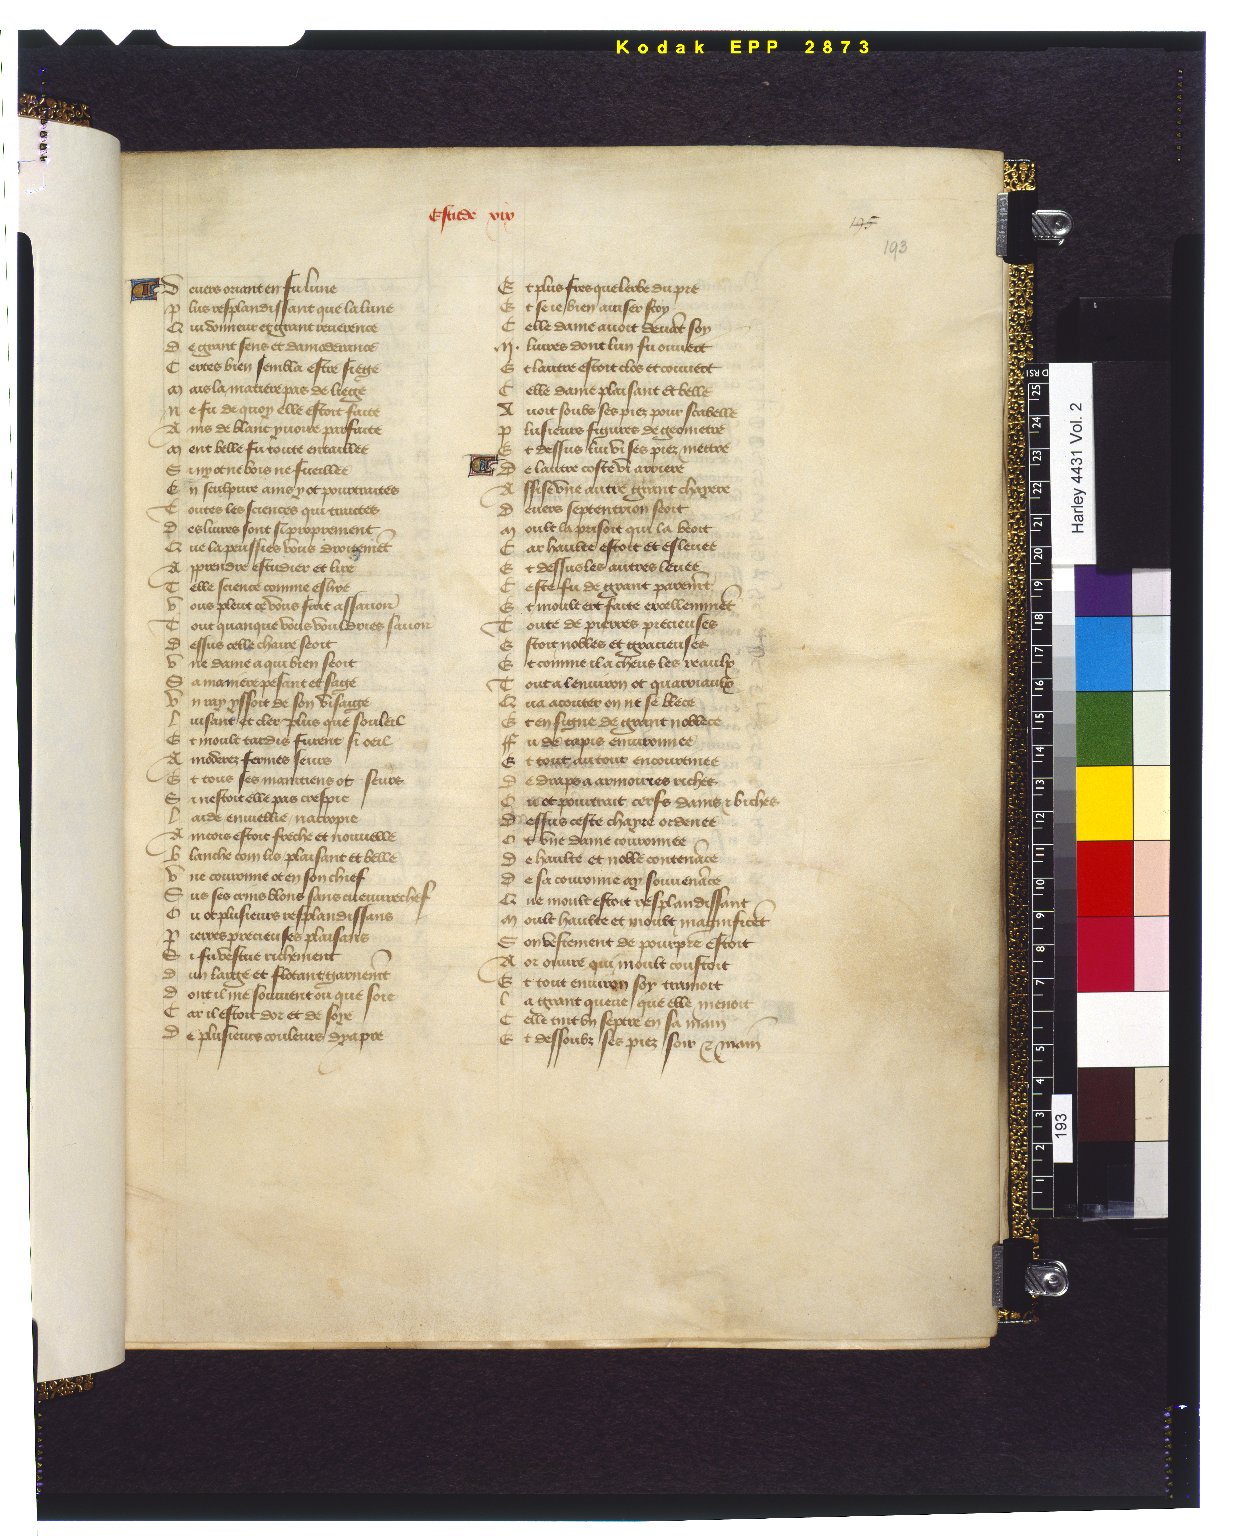 Kodak EPP 2873
Estude xix
195
193
Devers oriant en fu lune
Plus resplandissant que la lune
Qui donneur et grant reverence
De grant sens et dam
Certes bien sembla estre siege
Mais la matiere pas de liege
Ne fu de quoy elle estoit faite
Ains de blanc yvoire parfaite
Ment belle fu toute entaillee
Si ny ot ne bois ne fueillee
En sculpure ains y ot pourtraites
Toutes les sciences qui traictes
Des livres sont si proprement
Que la peussies vous droitemēt
Apprendre estudier et lire
Telle science comme eslire
Vous pleut ce vous fait assavoir
Tout quanque vous vouldries savoir
Dessus celle chaire seoit
Une dame a qui bien seoit
Sa maniere pesant et sage
Un ray yssoit de son visaige
Luisant et cler plus que souleil
Et moult tardis furent si oeil
Amoderez fermes seurs
Et tous ses maintiens ot seurs
Si nestoit elle pas crespie
Laide envellie nacropie
Aincois estoit freche et nouvelle
Blanche com lis plaisant et belle
Une couronne ot en son chief
Sus ses crins blons sans cuevrechef
Ou ot plusieurs resplandissans
Pierres precieuses plaisans
Si fu vestue richement
Dun large et flotant garnemēt
Dont il me souvient ou que soie
Car il estoit dor et de soye
De plusieurs couleurs dyapre
Et plus fres que lerbe du pre
Et se ie bien aviser soy
Celle dame avoit devāt soy
.II. livres dont lun fu ouvert
Et lautre estoit clos et couvert
Celle dame plaisant et belle
Avoit soubz ses piez pour scabelle
Plusieurs figures de geometrie
Et dessus lui vi ses piez mettre
De lautre coste vi arriere
Assise une autre grant chayere
Devers septentrion seoit
Moult la prisoit qui la veoit
Car haulte estoit et eslevee
Et dessus les autres levee
Ceste fu de grant paremēt
Et moult ert faite excellemmēt
Toute de pierres precieuses
Estoit nobles et gracieuses
Et comme il a cheus les reaulx
Tout a lenviron ot quarriaulx
Qua acouter on ne se blece
Et en signe de grant noblece
Fu de tapis environnee
Et tout autour encourtinee
De draps a armouries riches
Ou ot pourtrait cerfs dains et biches
Dessus ceste chayere ordenee
Ot une dame couronnee
De haulte et noble contenāce
De sa couronne ay souvenāce
Que moult estoit resplandissant
Moult haulte et moult magnificēt
Son vestement de pourpre estoit
A or ouvre qui moult coustoit
Et tout environ soy trainoit
La grant queue que elle menoit
Celle tint un septre en sa main
Et dessoubz ses piez soir et main
Harley 4431 Vol. 2
193